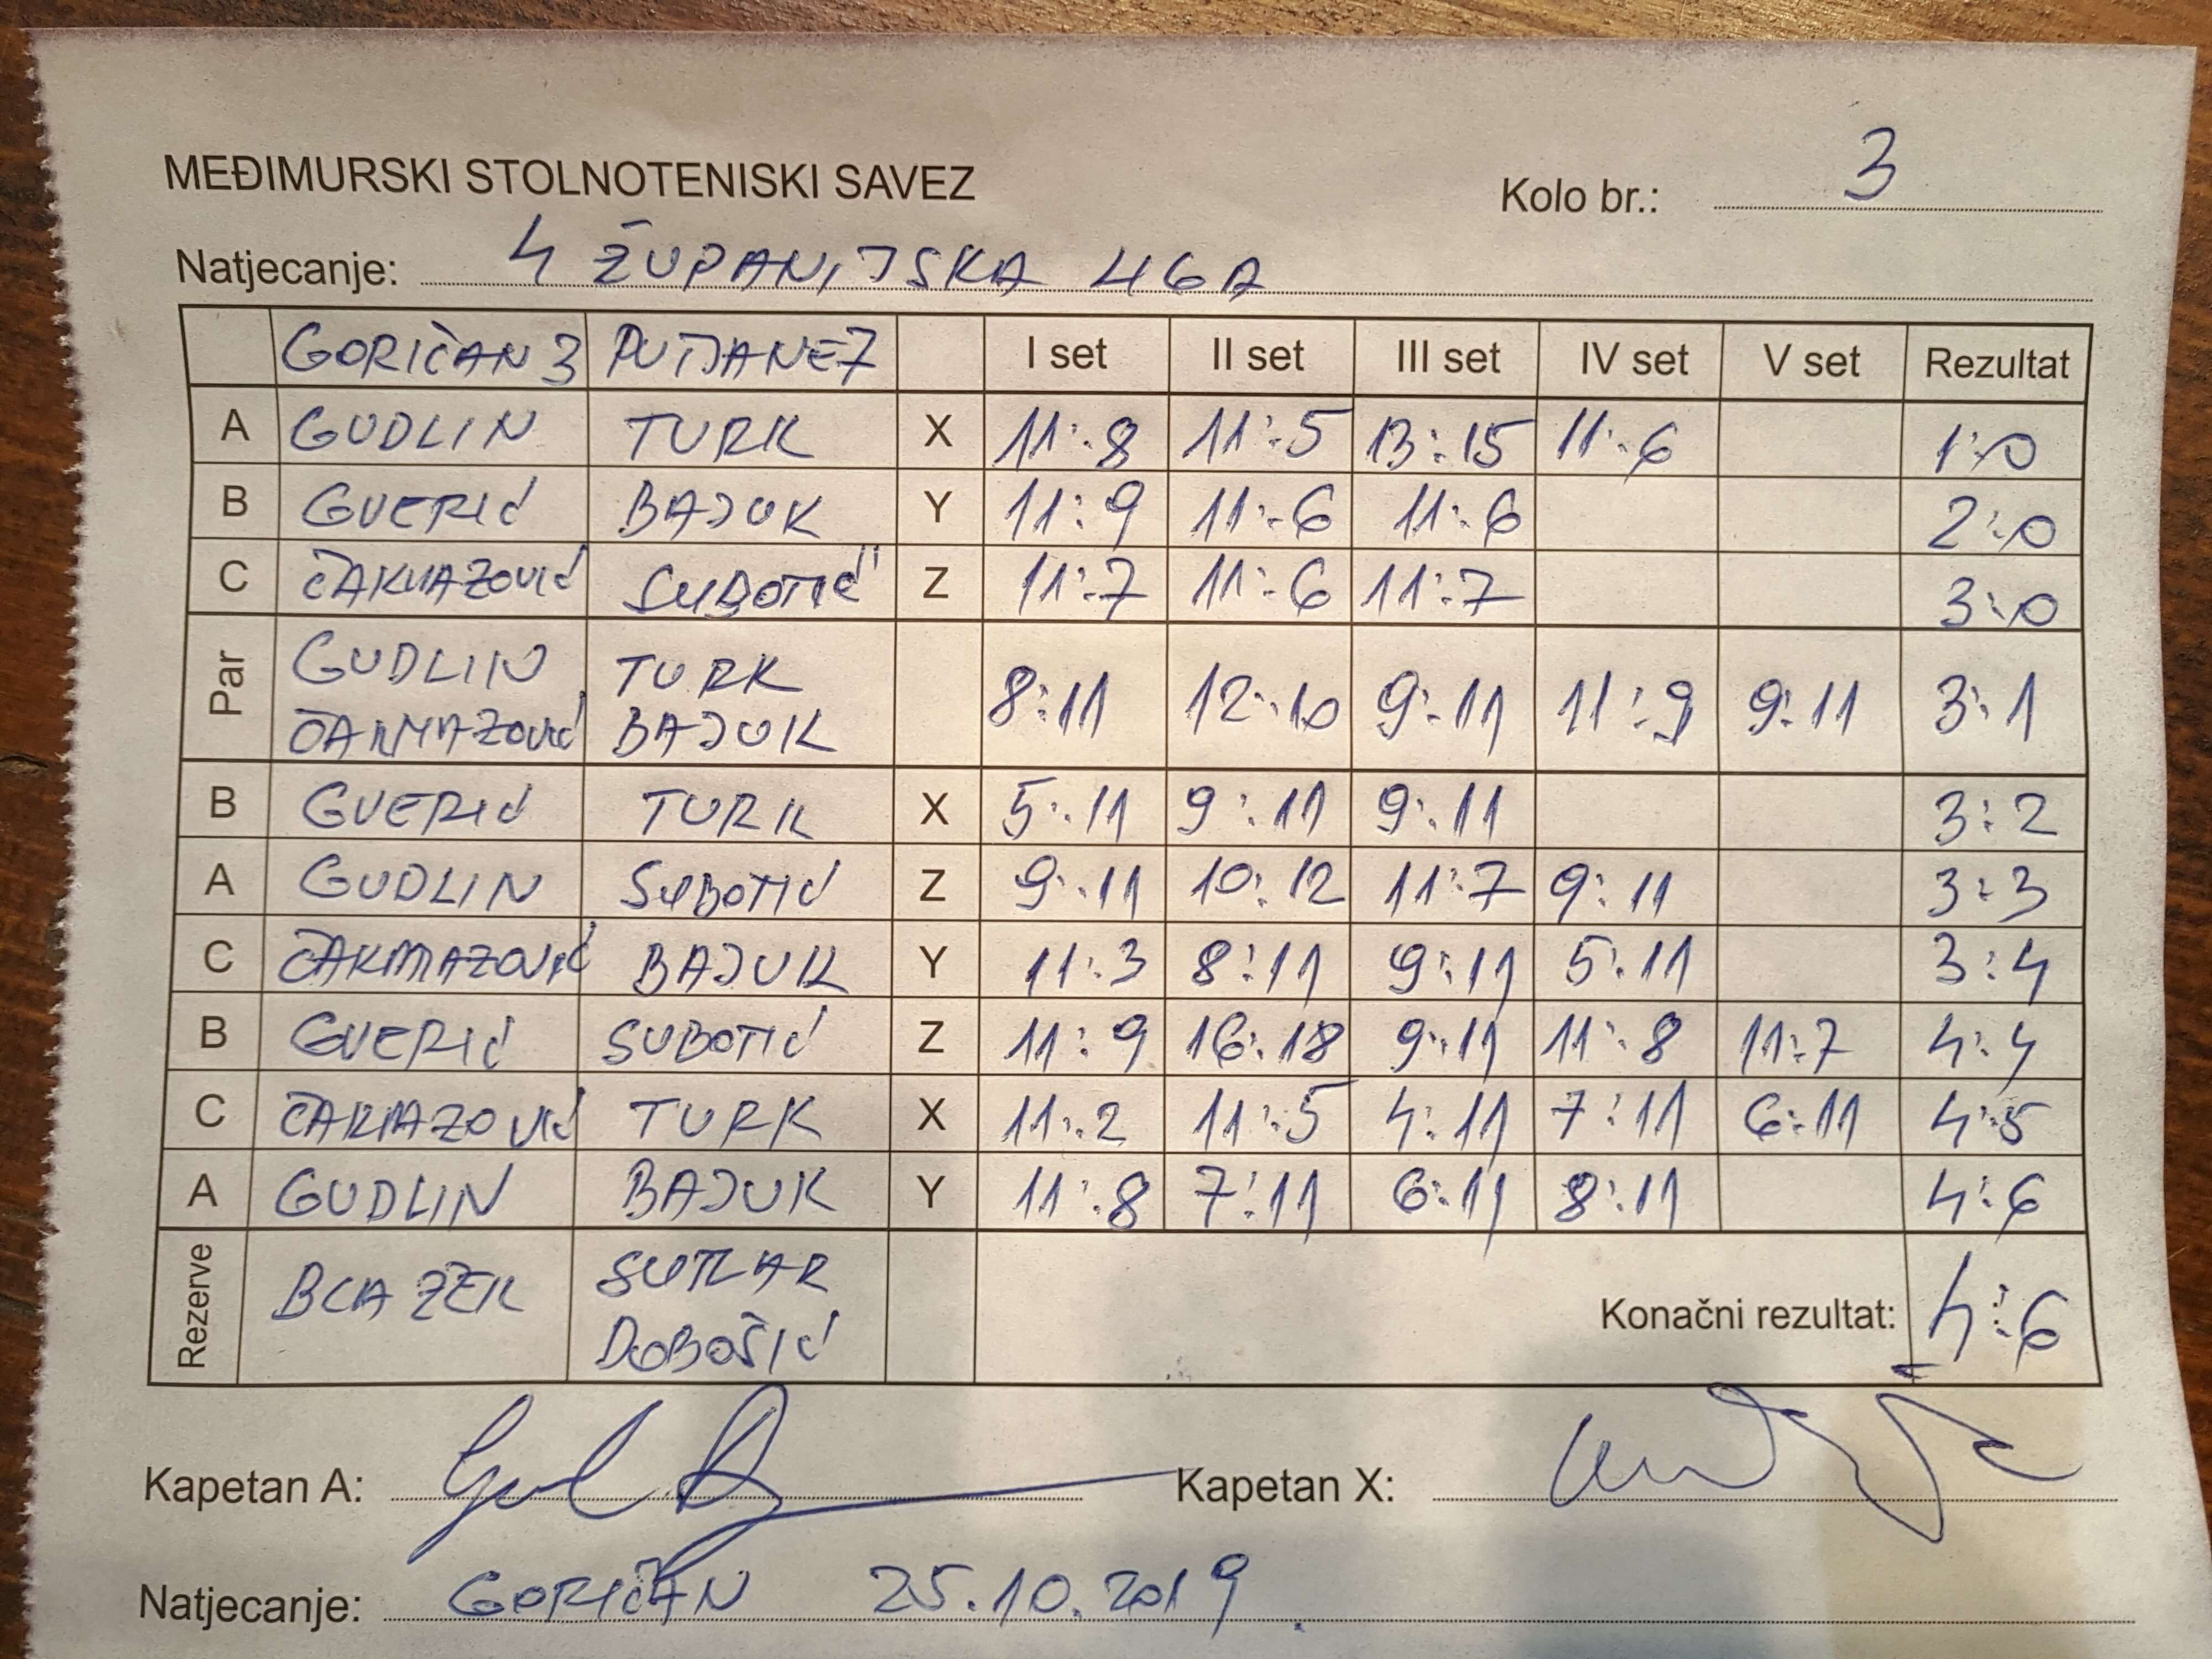 MEĐIMURSKI STOLNOTENISKI SAVEZ Kolo br.: 3
Natjecanje: 4 ŽUPANIJSKA LIGA
GORIČAN 3 PUTJANE 7 I set II set III set IV set V set Rezultat
A GUDLIN TURK X 11:8 11:5 13:15 11:6 1:0
B GVERIĆ BAJUK Y 11:9 11:6 11:6 2:0
C ČAKMAZOVIĆ SUBOTIĆ Z 11:7 11:6 11:7 3:0
Par GUDLIN TURK
ČAKMAZOVIĆ BAJUK 8:11 12:10 9:11 11:9 9:11 3:1
B GVERIĆ TURK X 5:11 9:11 9:11 3:2
A GUDLIN SUBOTIĆ Z 9:11 10:12 11:7 9:11 3:3
C ČAKMAZOVIĆ BAJUK Y 11:3 8:11 9:11 5:11 3:4
B GVERIĆ SUBOTIĆ Z 11:9 16:18 9:11 11:8 11:7 4:4
C ČAKMAZOVIĆ TURK X 11:2 11:5 4:11 7:11 6:11 4:5
A GUDLIN BAJUK Y 11:8 7:11 6:11 8:11 4:6
Rezerve BLAŽEK SUTLAR
DOBOŠIĆ Konačni rezultat: 4:6
Kapetan A: Kapetan X:
Natjecanje: GORIČAN 25.10.2019.